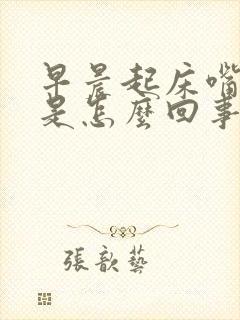 早晨起床嘴
是怎麼回事
張歆藝